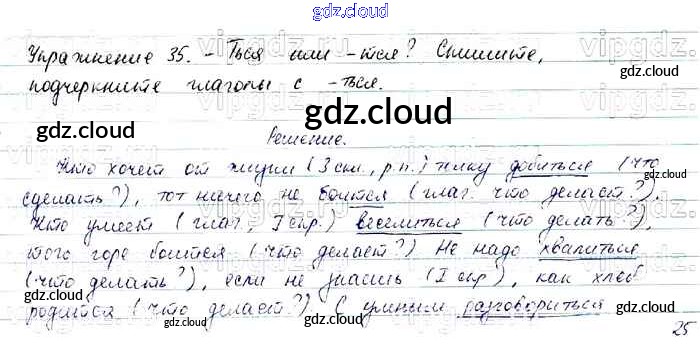 gdz.cloud
Упражнение 35. -Ться или -тся? Спишите,
подчеркните глаголы с -ться.
gdz.cloud
gdz.cloud
Решение.
Кто хочет от жизни (3 скл., р.п.) толку добиться (что
сделать?), тот ничего не боится (глаг. что делает?).
Кто умеет (глаг., I спр.) веселиться (что делать?),
того горе боится (что делает?) Не надо хвалиться
(что делать?), если не знаешь (I спр), как хлеб
родится (что делает?) С умным разговориться
gdz.cloud
gdz.cloud
25